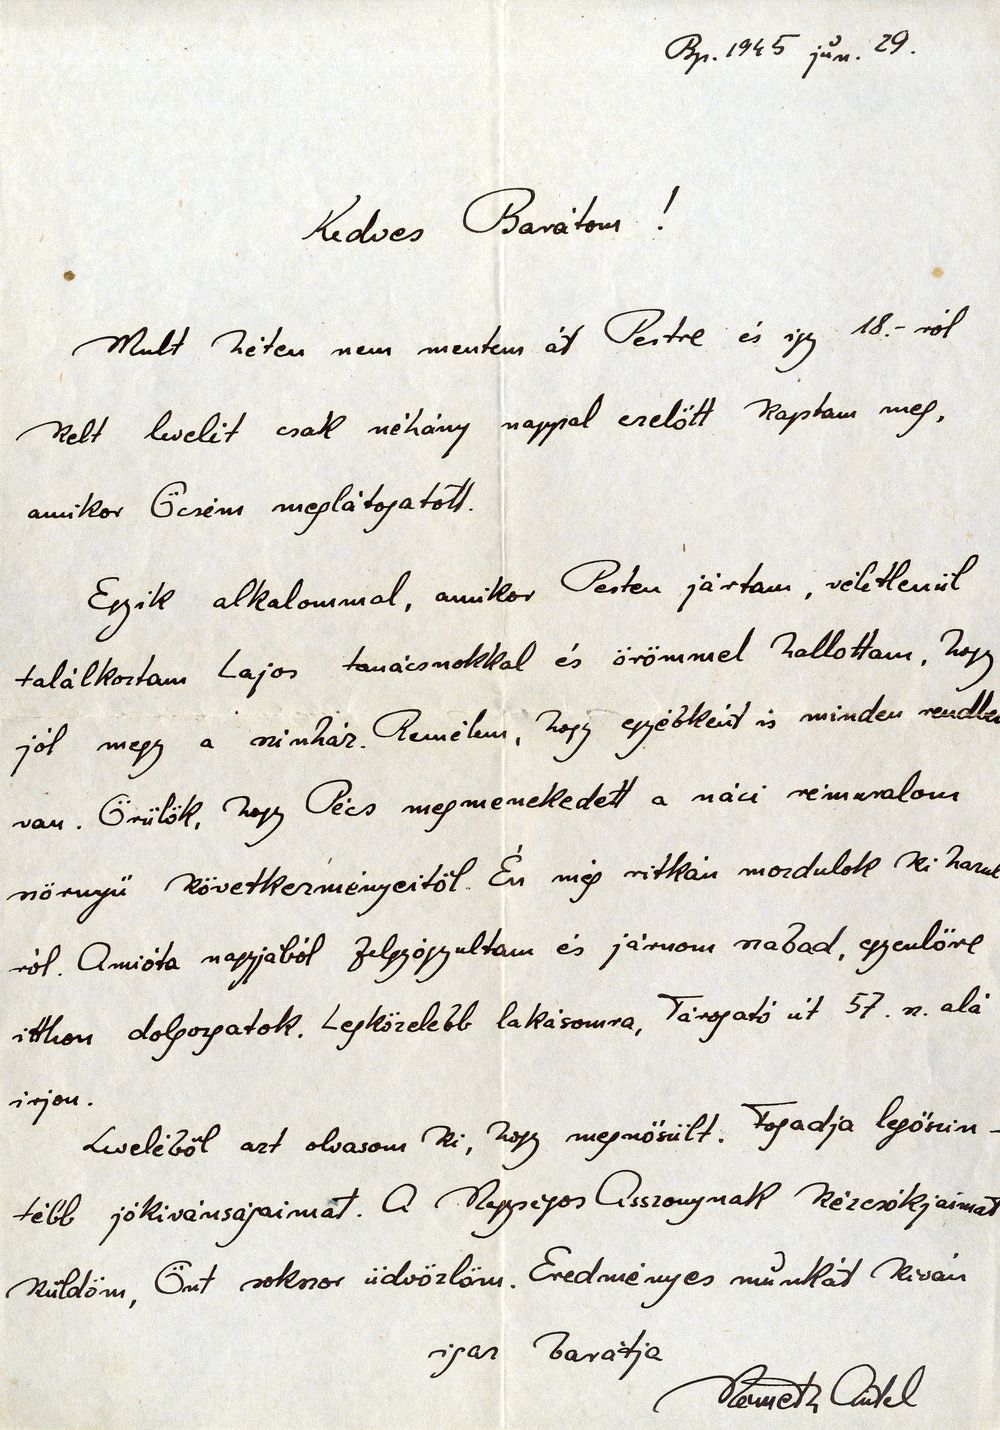 Bp. 1945 jún. 29.
Kedves Barátom !
Mult héten nem mentem át Pestre és igy 18.-ról
kelt levelét csak néhány nappal ezelőtt kaptam meg,
amikor Öcsém meglátogatott.
Egyik alkalommal, amikor Pesten jártam, véletlenül
találkoztam Lajos tanácsnokkal és örömmel hallottam, hogy
jól megy a szinház. Remélem, hogy egyébként is minden rendben
van. Örülök, hogy Pécs megmenekedett a náci rémuralom
szörnyü következményeitől. Én még ritkán mozdulok ki hazul
ról. Amióta nagyjából felgyógyultam és járnom szabad, egyenlőre
itthon dolgozgatok. Legközelebb lakásomra, Tárogató út 57. sz. alá
irjon.
Leveléből azt olvasom ki, hogy megnősült. Fogadja legőszin-
tébb jókivánságaimat. A Nagyságos Asszonynak kézcsókjaimat
küldöm, Önt sokszor üdvözlöm. Eredményes munkát kiván
igaz barátja
Németh Antal